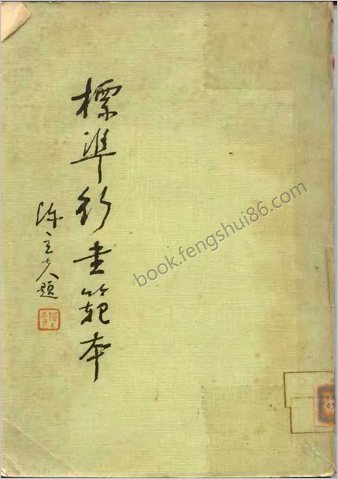 標準行書範本
陳立夫題
book.fengshui86.com